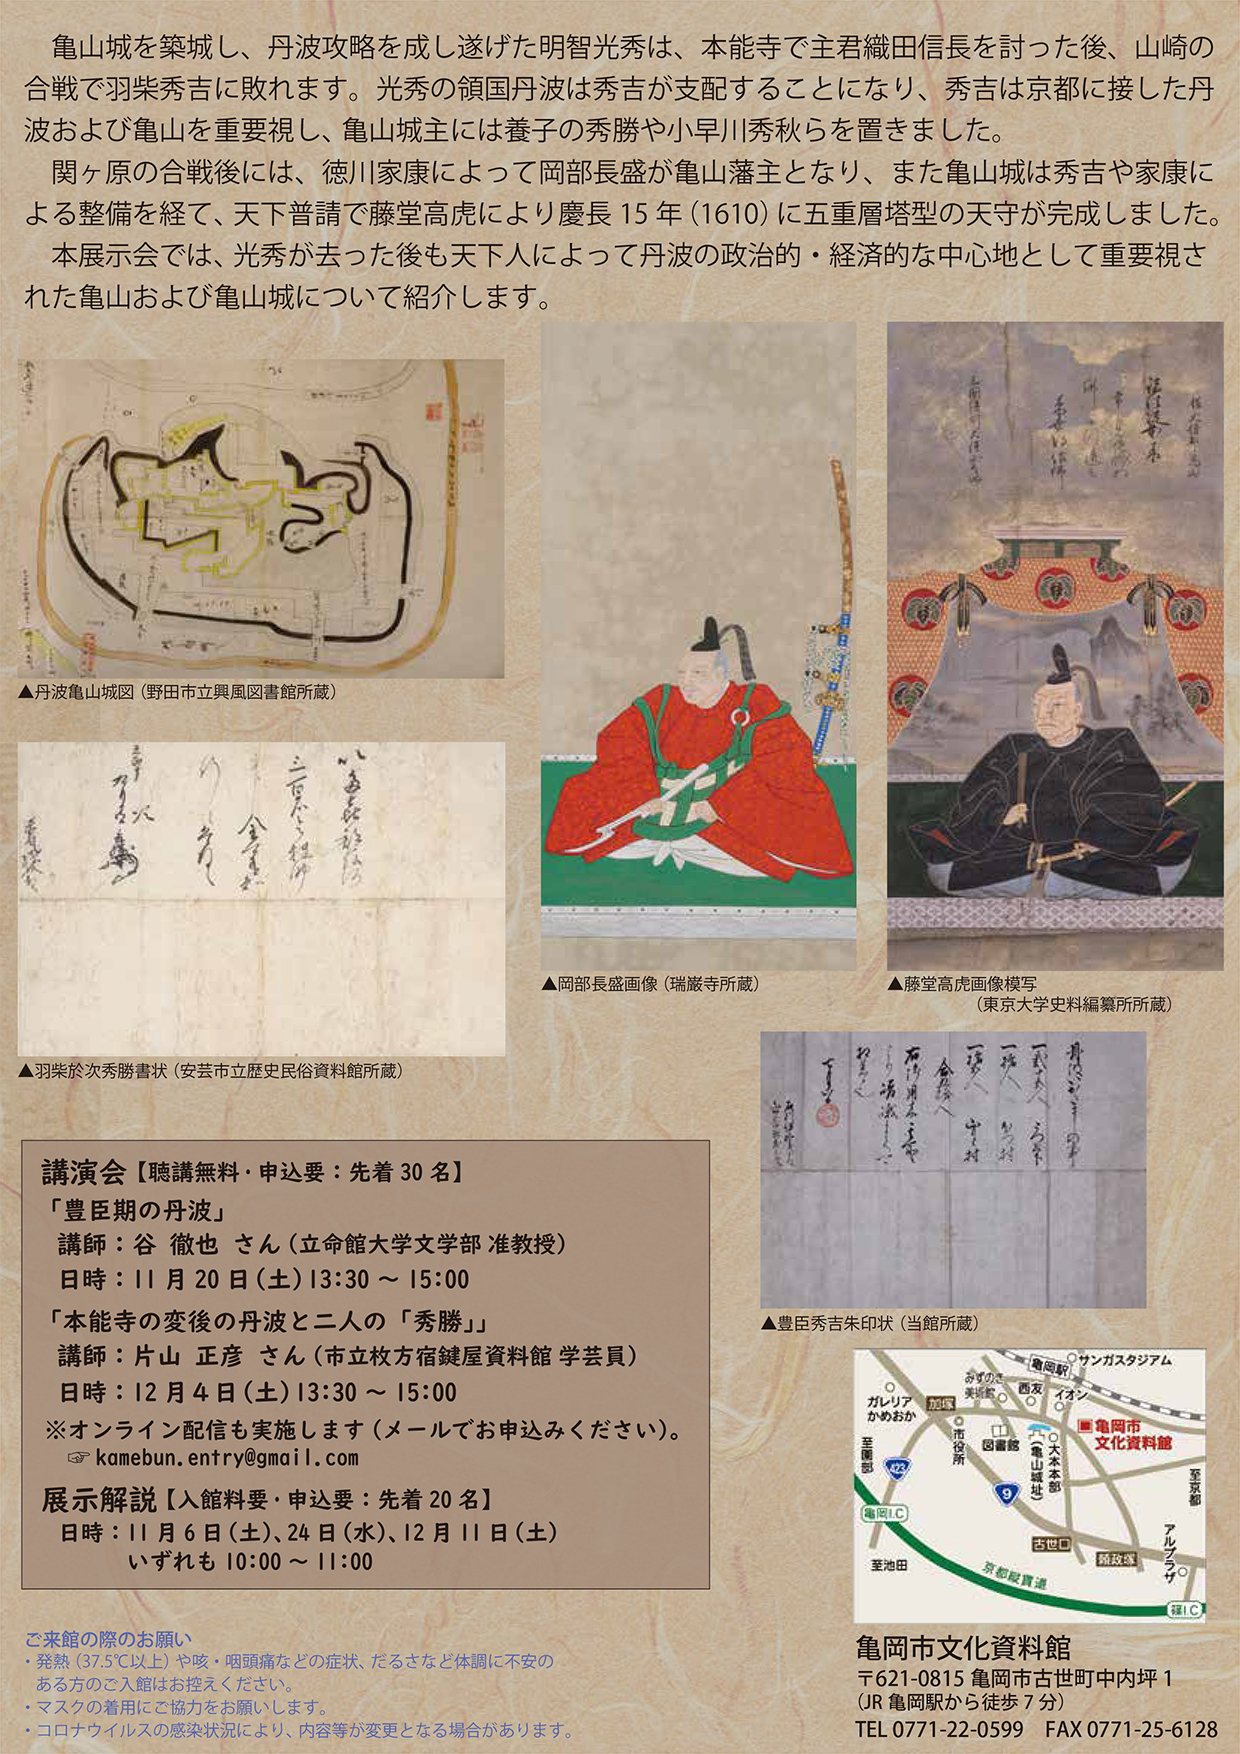 亀山城を築城し、丹波攻略を成し遂げた明智光秀は、本能寺で主君織田信長を討った後、山崎の
合戦で羽柴秀吉に敗れます。光秀の領国丹波は秀吉が支配することになり、秀吉は京都に接した丹
波および亀山を重要視し、亀山城主には養子の秀勝や小早川秀秋らを置きました。
関ヶ原の合戦後には、徳川家康によって岡部長盛が亀山藩主となり、また亀山城は秀吉や家康に
よる整備を経て、天下普請で藤堂高虎により慶長 15 年（1610）に五重層塔型の天守が完成しました。
本展示会では、光秀が去った後も天下人によって丹波の政治的・経済的な中心地として重要視さ
れた亀山および亀山城について紹介します。
▲丹波亀山城図（野田市立興風図書館所蔵）
▲岡部長盛画像（瑞巌寺所蔵）
▲藤堂高虎画像模写
（東京大学史料編纂所所蔵）
▲羽柴於次秀勝書状（安芸市立歴史民俗資料館所蔵）
▲豊臣秀吉朱印状（当館所蔵）
講演会【聴講無料・申込要：先着 30 名】
「豊臣期の丹波」
講師：谷 徹也 さん（立命館大学文学部 准教授）
日時：11 月 20 日（土）13:30 ～ 15:00
「本能寺の変後の丹波と二人の「秀勝」」
講師：片山 正彦 さん（市立枚方宿鍵屋資料館 学芸員）
日時：12 月 4 日（土）13:30 ～ 15:00
※オンライン配信も実施します（メールでお申込みください）。
☞ kamebun.entry@gmail.com
展示解説【入館料要・申込要：先着 20 名】
日時：11 月 6 日（土）、24 日（水）、12 月 11 日（土）
いずれも 10:00 ～ 11:00
亀岡駅
サンガスタジアム
みずのき
美術館
西友
イオン
ガレリア
かめおか
加塚
市役所
図書館
大本本部
（亀山城址）
亀岡市
文化資料館
至園部
423
9
至京都
亀岡I.C
古世口
頼政塚
アルプラザ
至池田
京都縦貫道
篠I.C
ご来館の際のお願い
・発熱（37.5℃以上）や咳・咽頭痛などの症状、だるさなど体調に不安の
ある方のご入館はお控えください。
・マスクの着用にご協力をお願いします。
・コロナウイルスの感染状況により、内容等が変更となる場合があります。
亀岡市文化資料館
〒621-0815 亀岡市古世町中内坪 1
（JR 亀岡駅から徒歩 7 分）
TEL 0771-22-0599 FAX 0771-25-6128